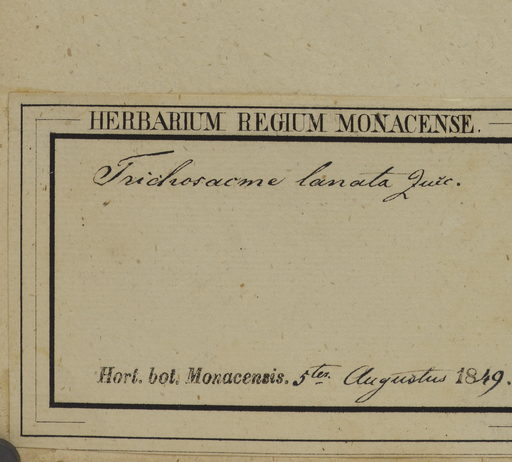 HERBARIUM REGIUM MONACENSE.
Trichosacme lanata Zucc.
Hort. bot. Monacensis. 5ter. Augustus 1849.